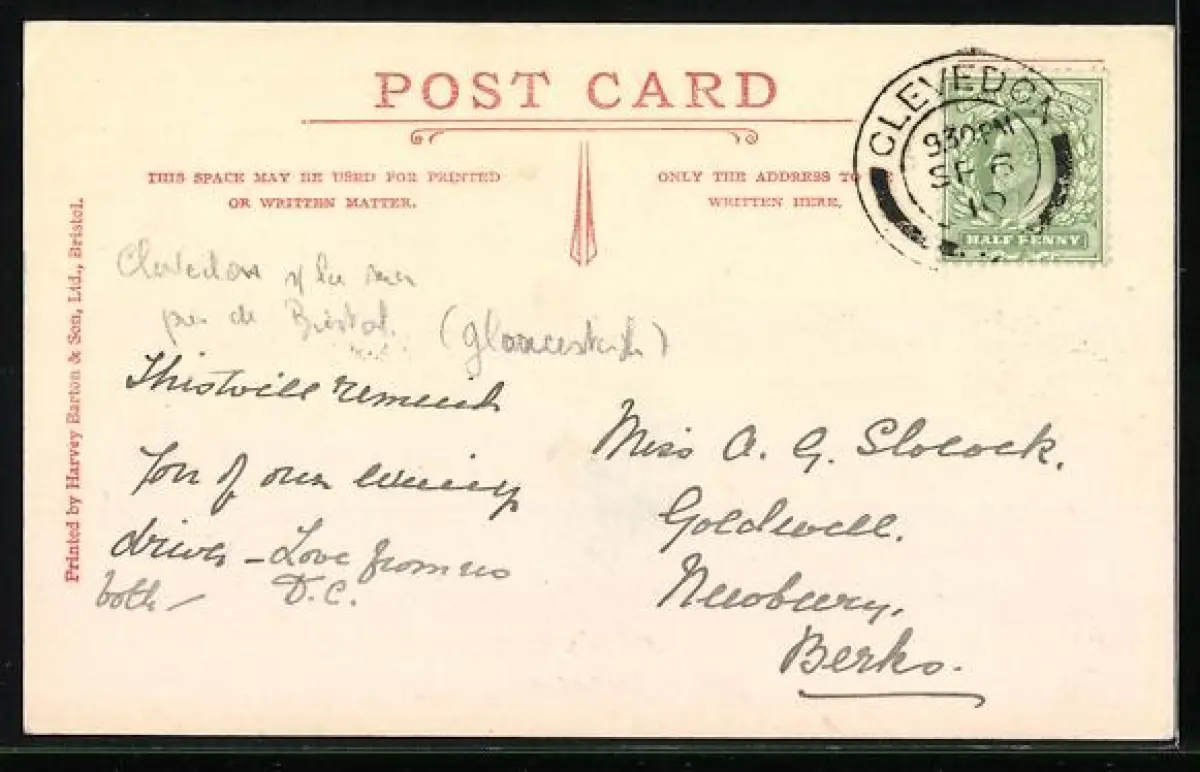 POST CARD
THIS SPACE MAY BE USED FOR PRINTED
OR WRITTEN MATTER.
ONLY THE ADDRESS TO BE
WRITTEN HERE.
CLEVEDON
9 30 PM
SP 6
10
HALF PENNY
Printed by Harvey Barton & Son, Ltd., Bristol.
Clevedon s/ la mer
près de Bristol.
(Gloucestersh)
This will remind
you of our evening
drives - Love from us
both - D.C.
Miss A. G. Slocock.
Goldwell.
Newbury.
Berks.